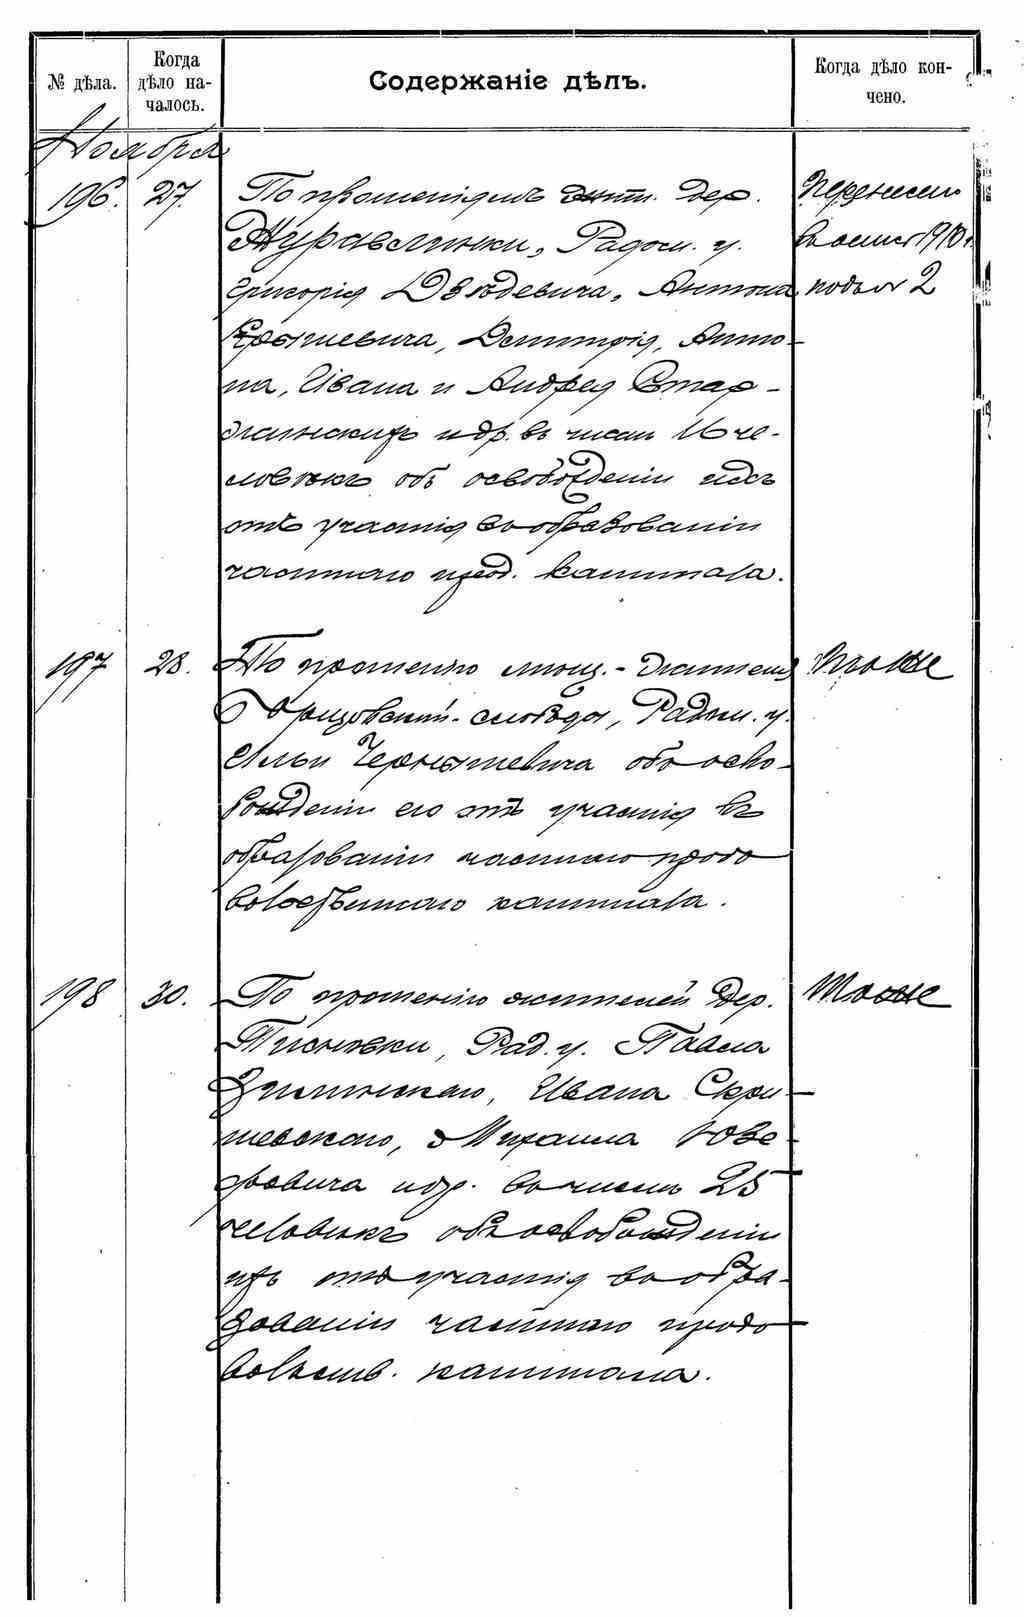 № дѣла.
Когда
дѣло на-
чалось.
Содержаніе дѣлъ.
Когда дѣло кон-
чено.
Ноября
196. 27. По прошеніямъ жит. дер.
Журавлинки, Радом. у.
Григорія Антона
Дмитрія, Анто-
на, Ивана и Андрея Стар-
жинскихъ и др. въ числѣ 16 че-
ловѣкъ объ освобожденіи ихъ
отъ участія въ образованіи
частнаго прод. капитала.
Перенесено
въ опись 1910 г.
подъ № 2
197 28. По прошенію мѣщ.-жителя
слободы, Радом. у.
Ильи Чернышевича объ осво-
божденіи его отъ участія въ
образованіи частнаго продо
вольственнаго капитала.
Тоже
198 30. По прошенію жителей дер.
Рад. у. Павла
Зилинскаго, Ивана Скри-
шевскаго, Михаила
и др. въ числѣ 25
человѣкъ объ освобожденіи
ихъ отъ участія въ обра-
зованіи частнаго продо
вольств. капитала.
Тоже